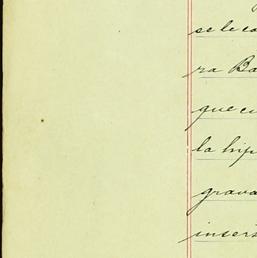 se le co
ra Ba
que cu
la hip
grava
insers